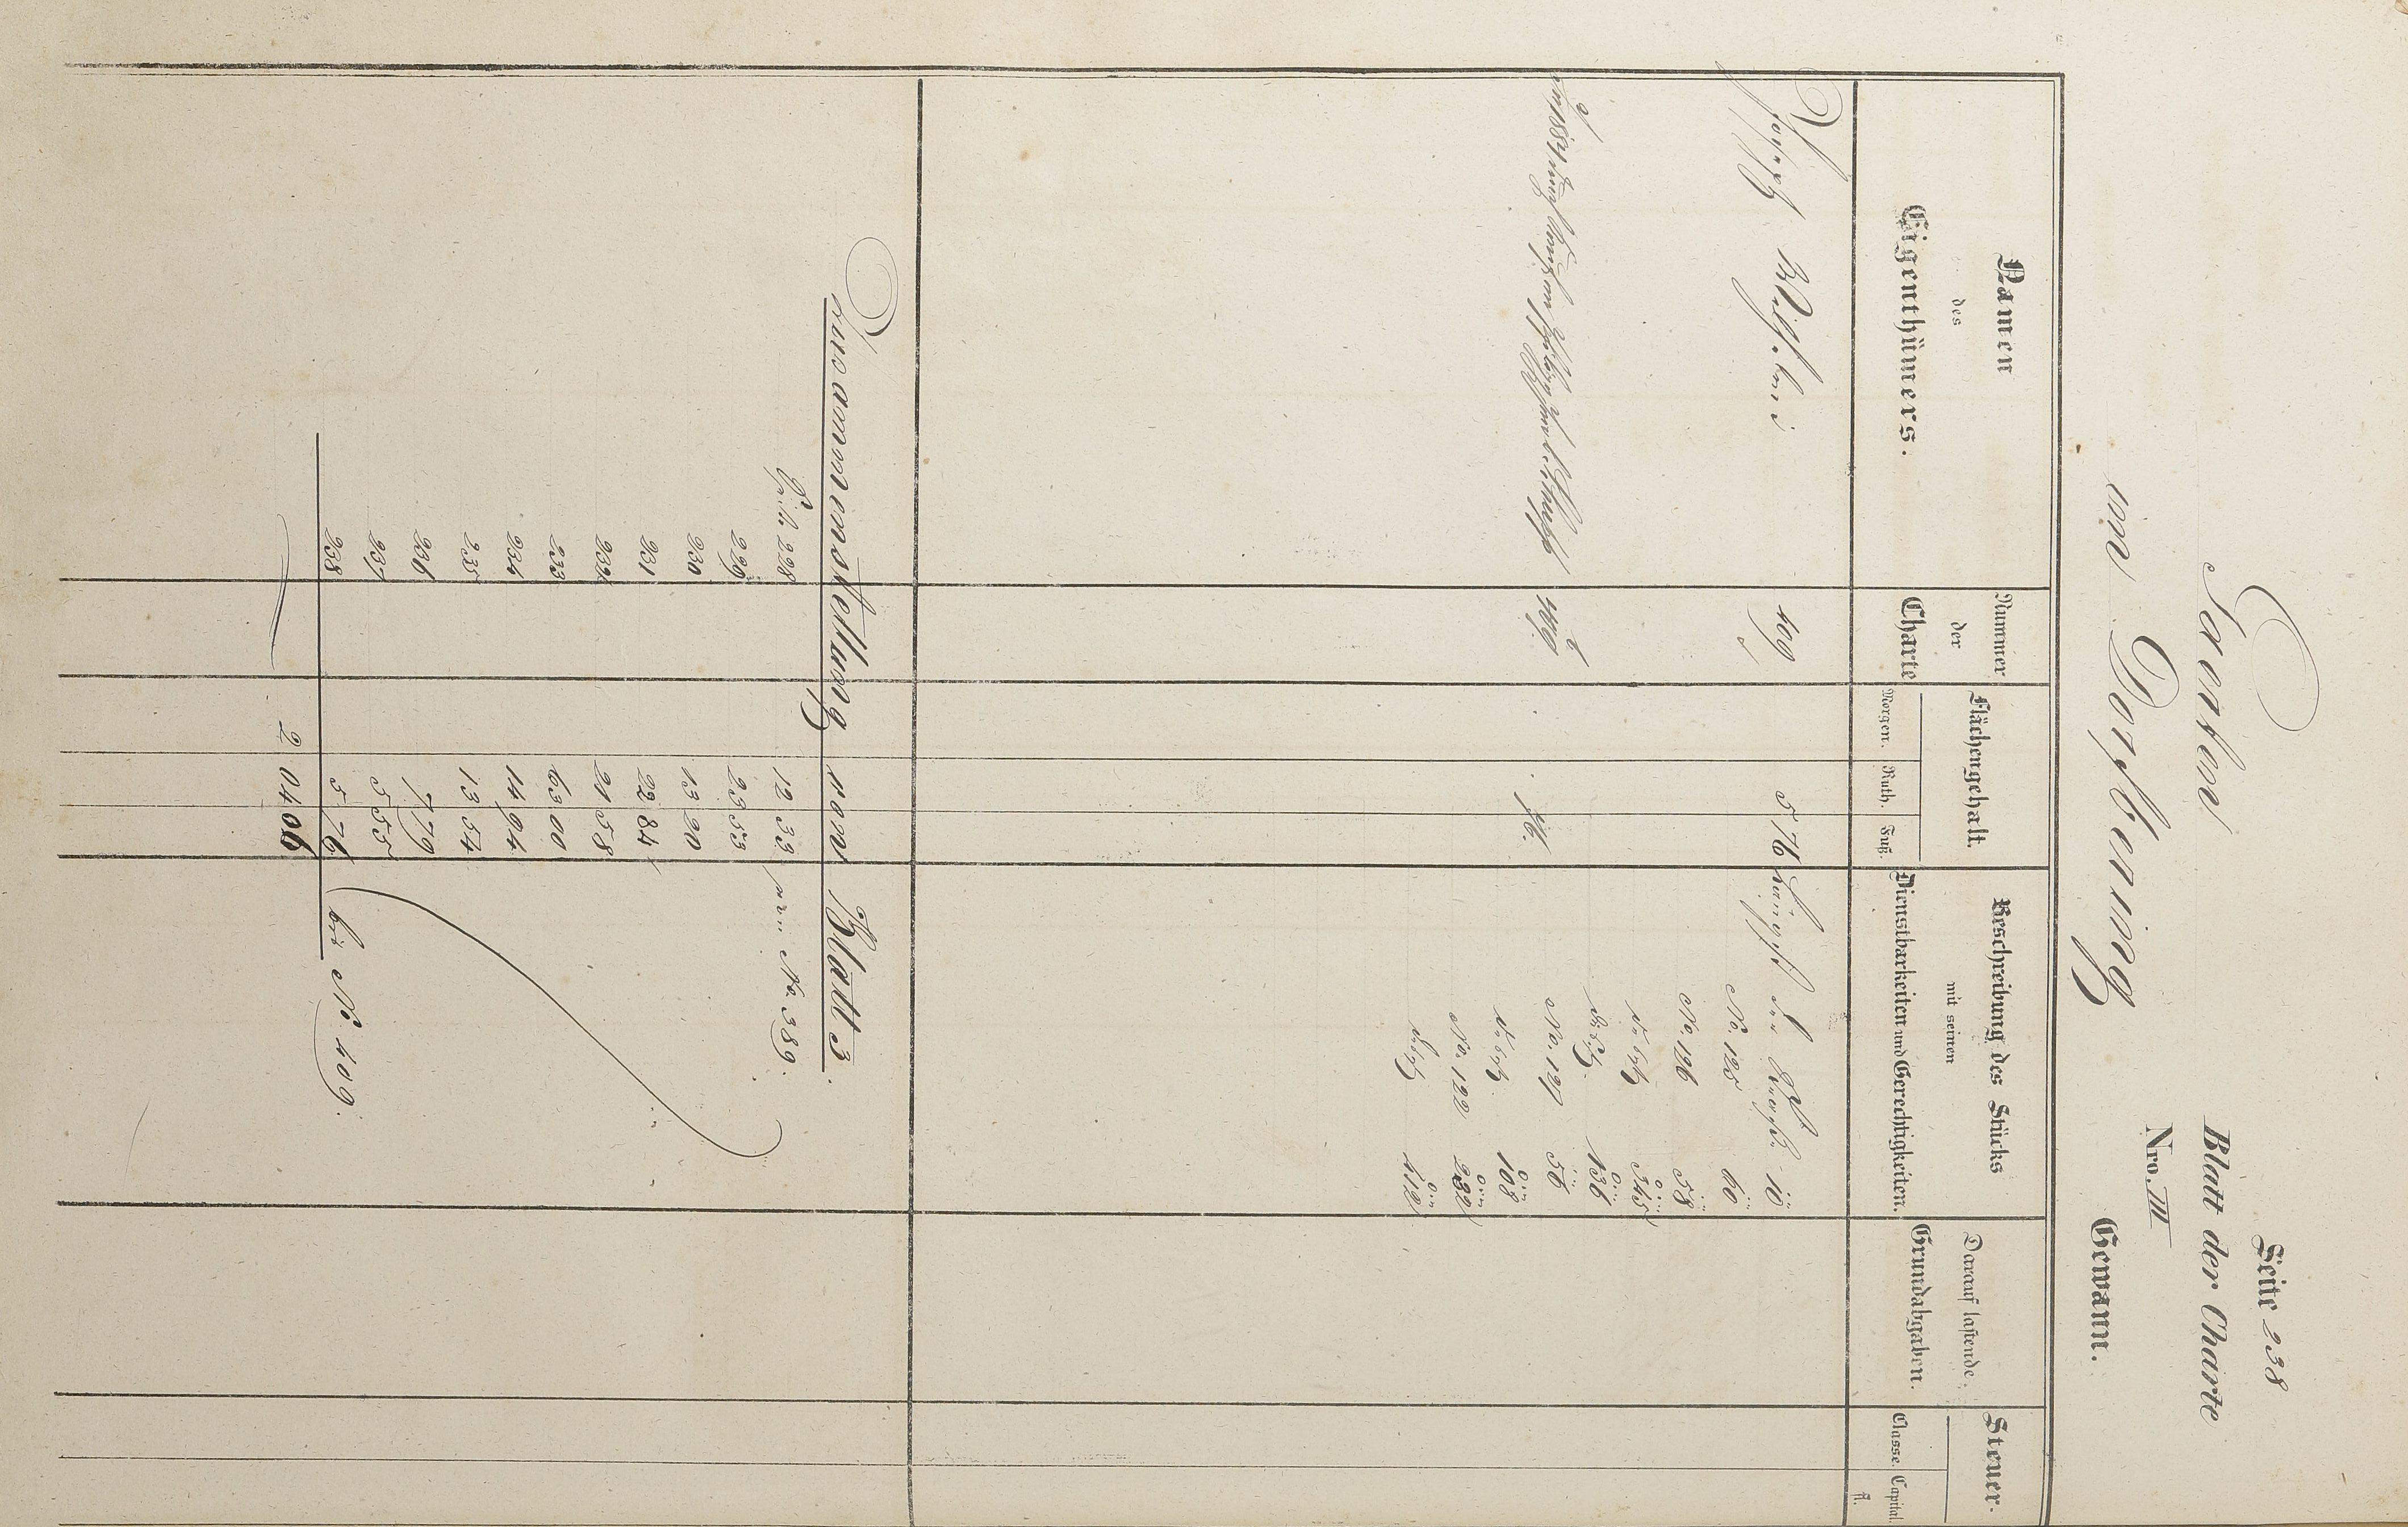 Seite 238
Blatt der Charte
Nro. III
Gewann.
Garten
von Dorfbering
Namen
des
Eigenthümers.
Nummer
der
Charte
Flächengehalt.
Morgen. Ruth. Fuß.
Beschreibung des Stücks
mit seinen
Dienstbarkeiten und Gerechtigkeiten.
Darauf lastende
Grundabgaben.
Steuer.
Classe. Capital
fl.
Joseph 409 5 76 10
No. 125 60
No. 126 58
345
136
No. 127 56
108
No. 122 232
112
Zusammenstellung von Blatt 3.
Seite 228 12 33 von No. 389.
229 23 53
230 13 20
231 22 84
232 21 58
233 63 00
234 14 94
235 13 54
236 7 79
237 5 55
238 5 76 bis No. 409.
2 04 06